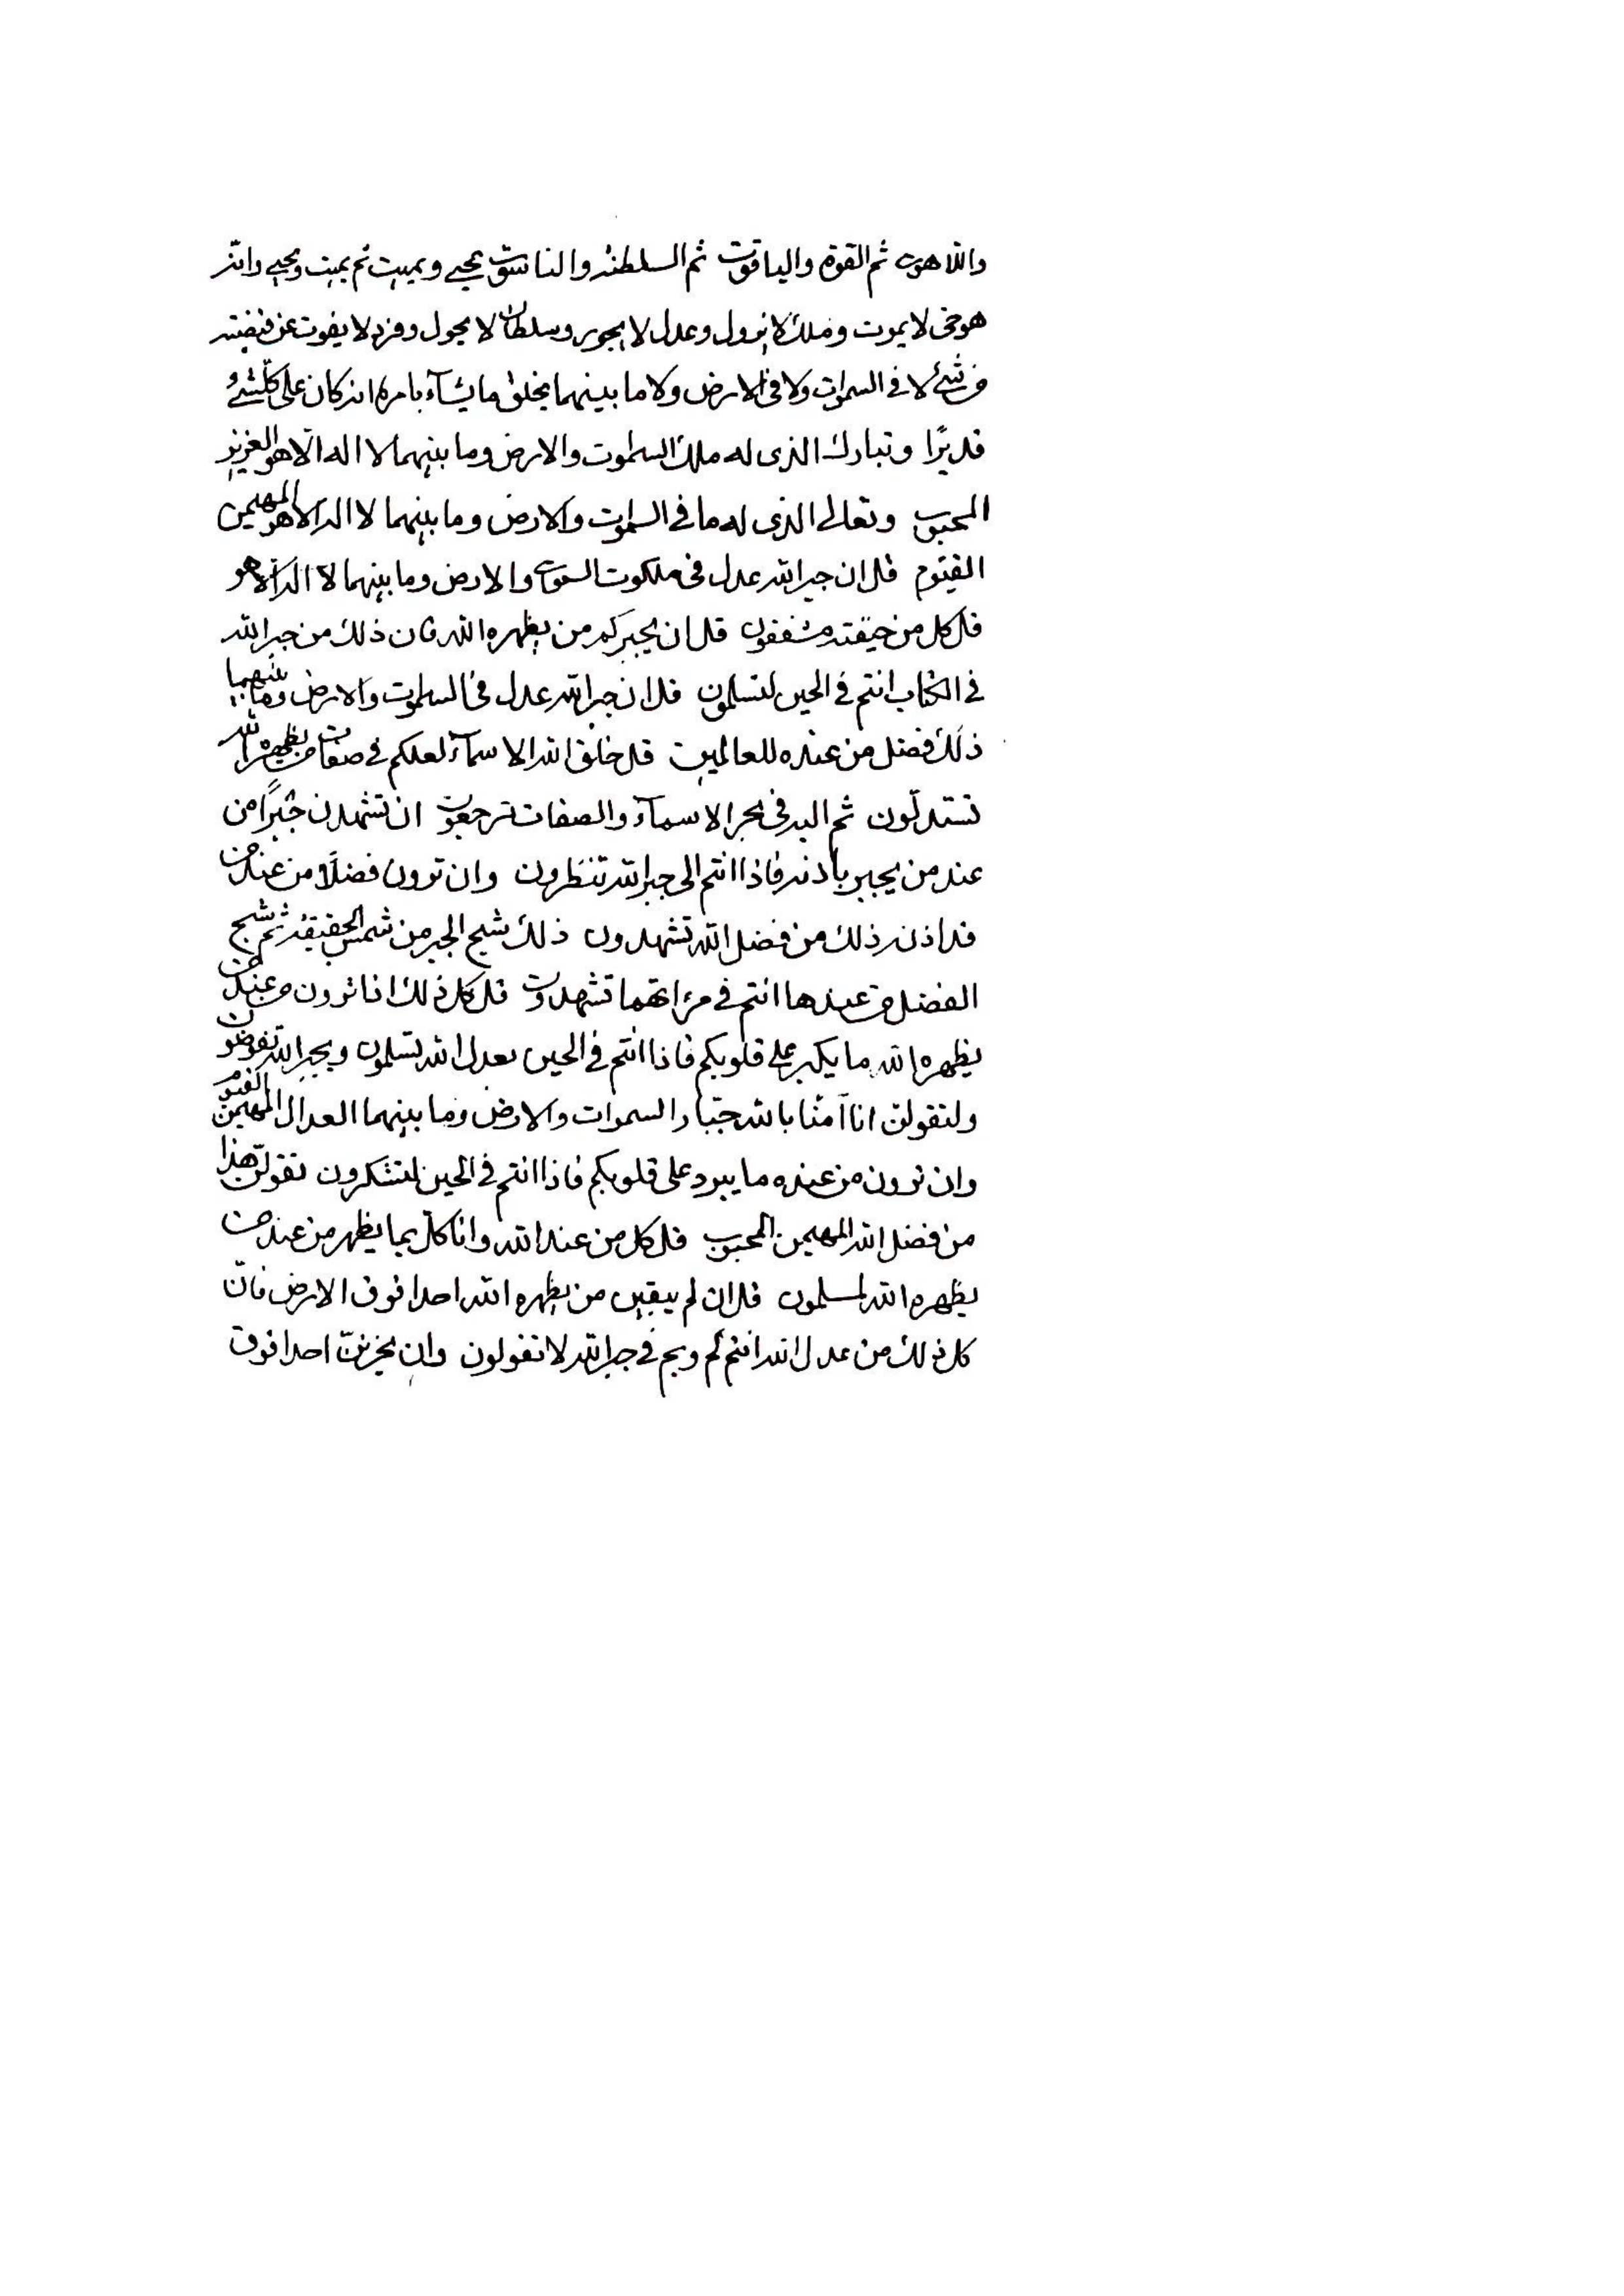 واللاهوت ثم القوة والياقوت ثم السلطنة والناسوت يحيي ويميت ثم يميت ويحيي وانه
هو حي لا يموت وملك لا يزول وعدل لا يجور وسلطان لا يحول وفرد لا يفوت عن قبضته
من شئ لا في السموات ولا في الارض ولا ما بينهما يخلق ما يشآء بامره انه كان على كلشئ
قديرًا وتبارك الذى له ملك السموت والارض وما بينهما لا اله الا هو العزيز
المحبوب وتعالى الذى له ما في السموات والارض وما بينهما لا اله الا هو المهيمن
القيوم قل ان جبر الله عدل فى ملكوت السموات والارض وما بينهما لا اله الا هو
قل كل من خيفته مشفقون قل ان يجبركم من يظهره الله فان ذلك من جبر الله
في الكتاب انتم في الحين لتسلمون قل ان جبر الله عدل في السموت والارض وما بينهما
ذلك فضل من عنده للعالمين قل خلق الله الاسمآء لعلكم في صفات من يظهره الله
تستدلون ثم اليه في بحر الاسمآء والصفات ترجعون ان تشهدن جبرًا من
عند من يجبر باذنه فاذا انتم الى جبر الله تنظرون وان ترون فضلًا من عند من
قد اذن ذلك من فضل الله تشهدون ذلك شبح الجبر من شمس الحقيقة ثم شبح
الفضل من عندها انتم في مراتهما تشهدون قل كل ذلك اذا ترون من عند من
يظهره الله ما يكبر على قلوبكم فاذا انتم في الحين بعدل الله تسلمون وبجبر الله تفوضون
ولتقولن انا آمنا بالله جبار السموات والارض وما بينهما العدال المهيمن القيوم
وان ترون من عنده ما يبرد على قلوبكم فاذا انتم في الحين لتشكرون تقولن هذا
من فضل الله المهيمن المحبوب قل كل من عند الله وانا كل بما يظهر من عند من
يظهره الله لمسلمون قل ان لم يبقين من يظهره الله احدا فوق الارض فان
كل ذلك من عدل الله انتم لم وبم في جبر الله لا تقولون وان يحزنن احدا فوق